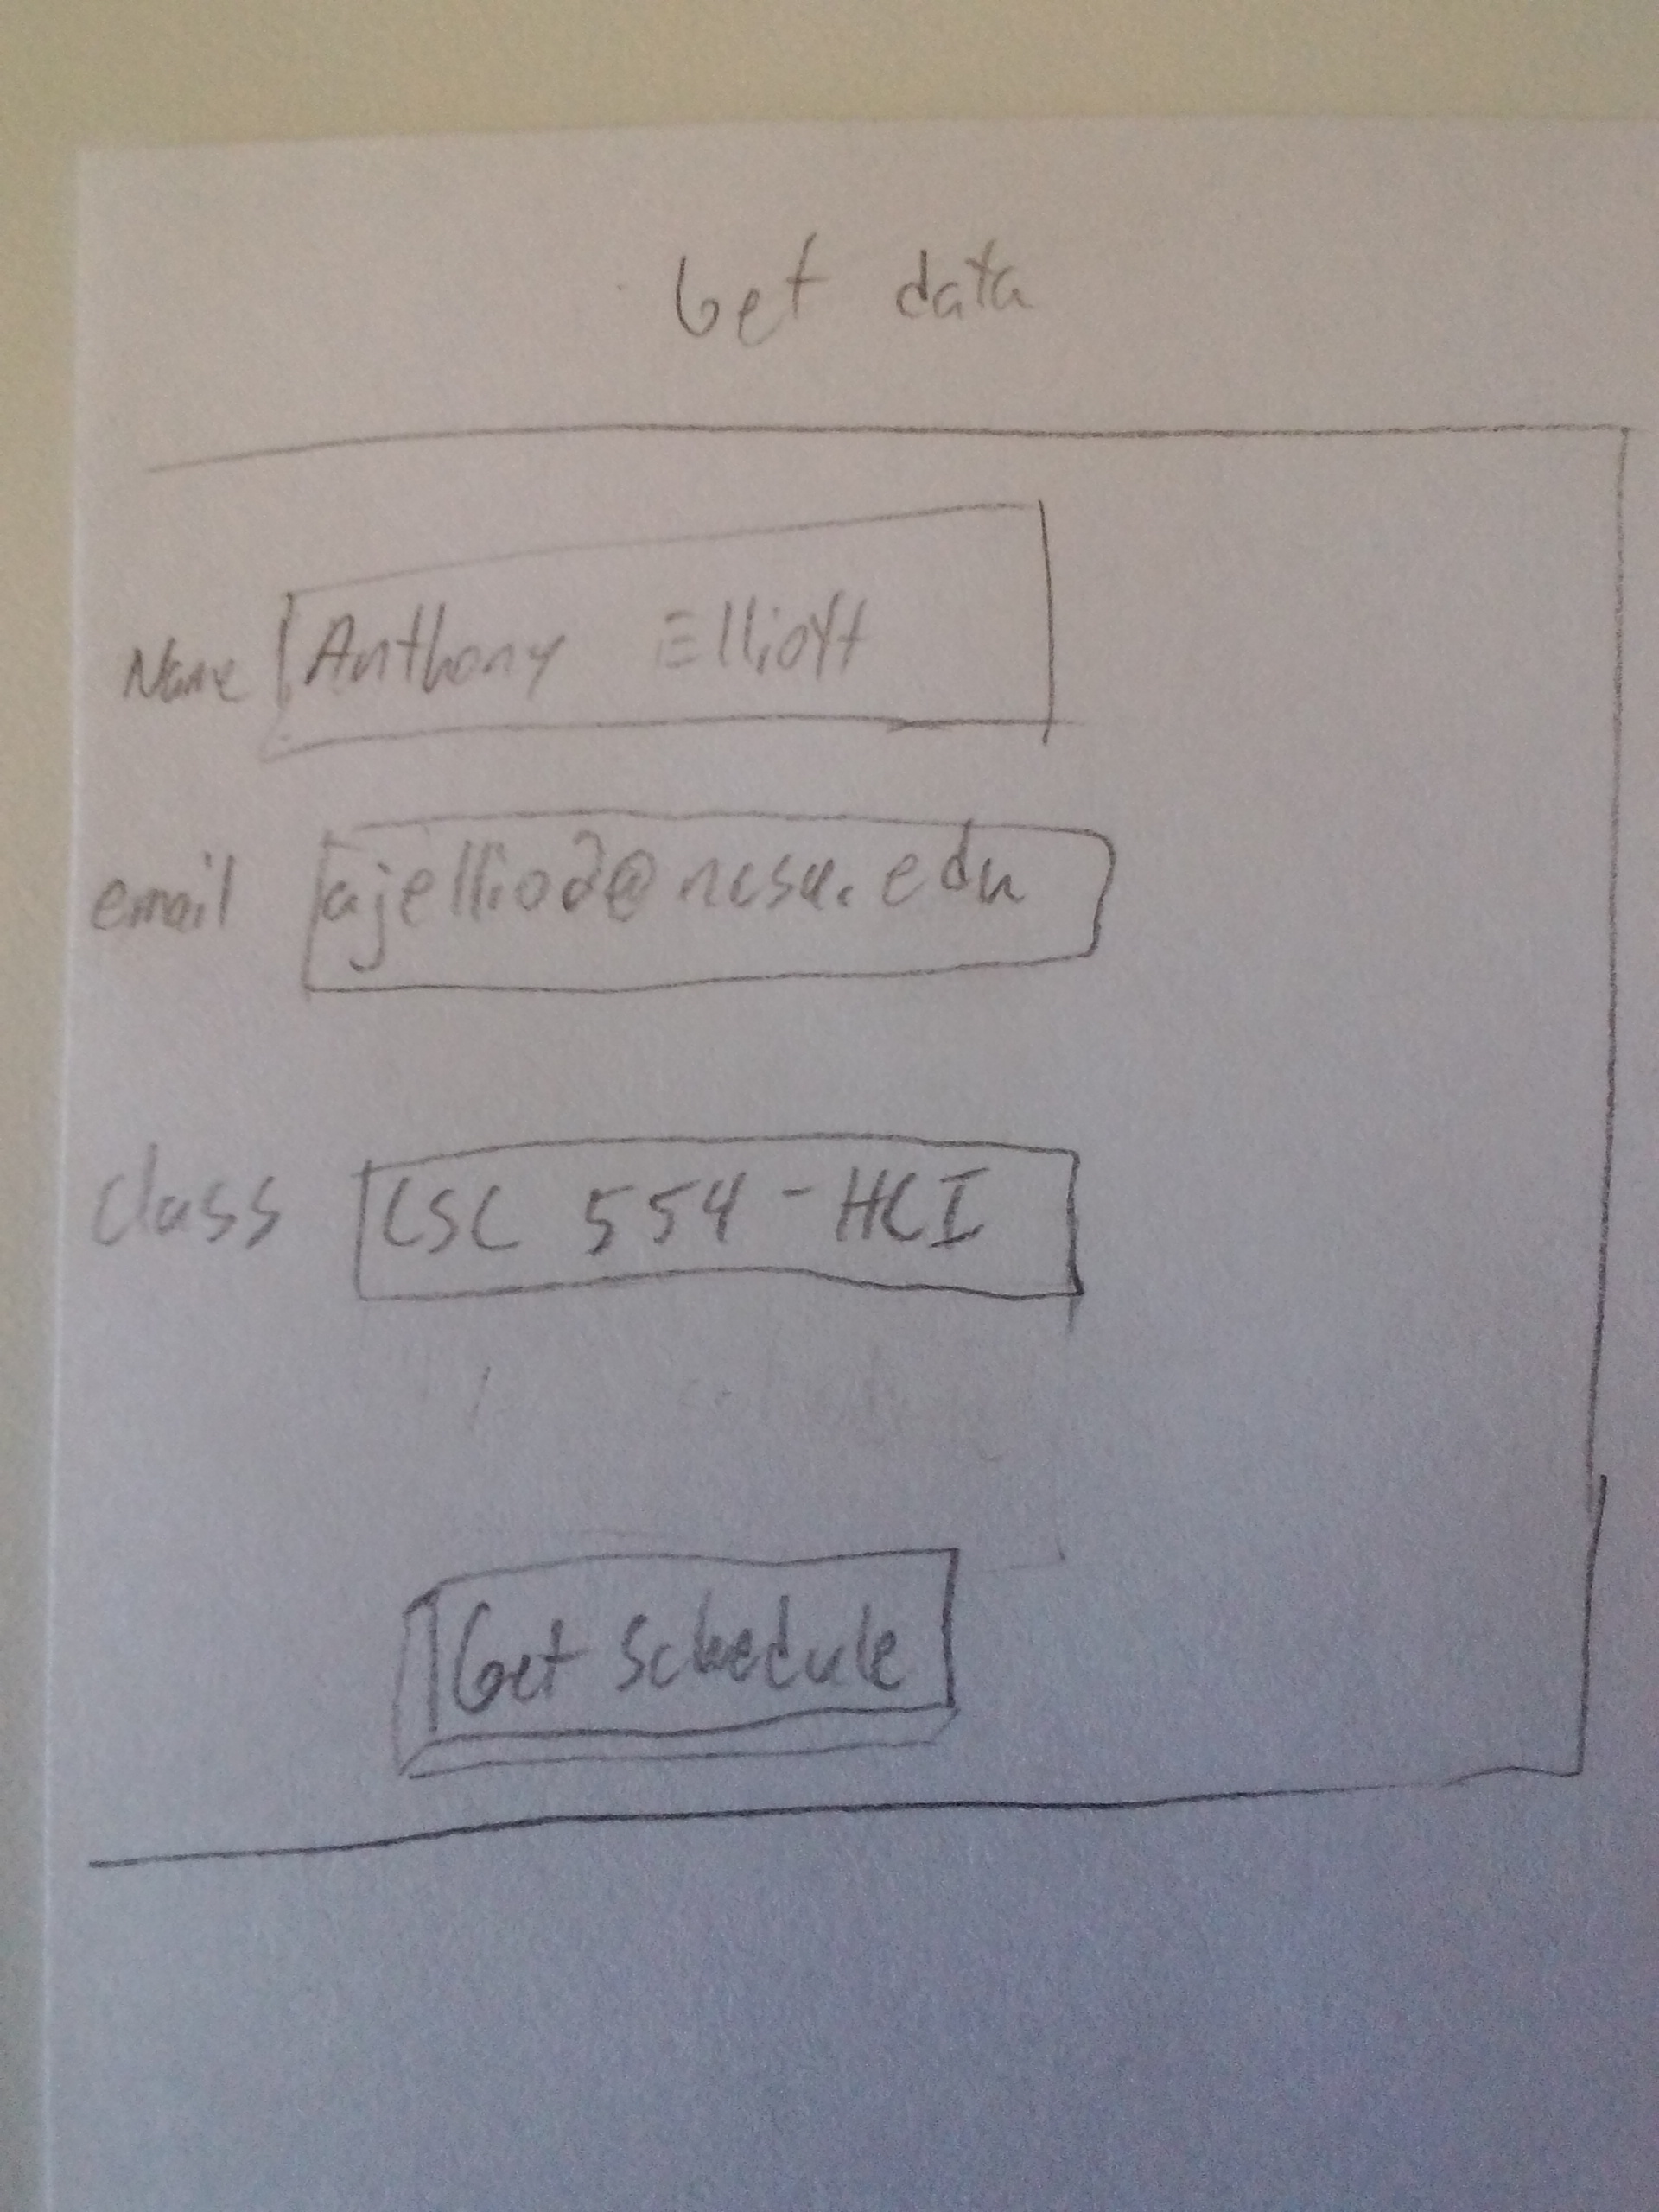 Get data
Name Anthony Elliott
email ajellio2@ncsu.edu
class CSC 554-HCI
Get Schedule